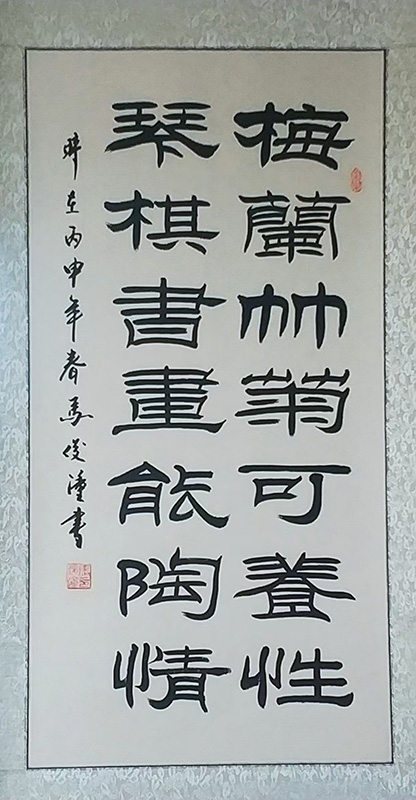 梅蘭竹菊可養性
琴棋書畫能陶情
時在丙申年春馬俊潼書